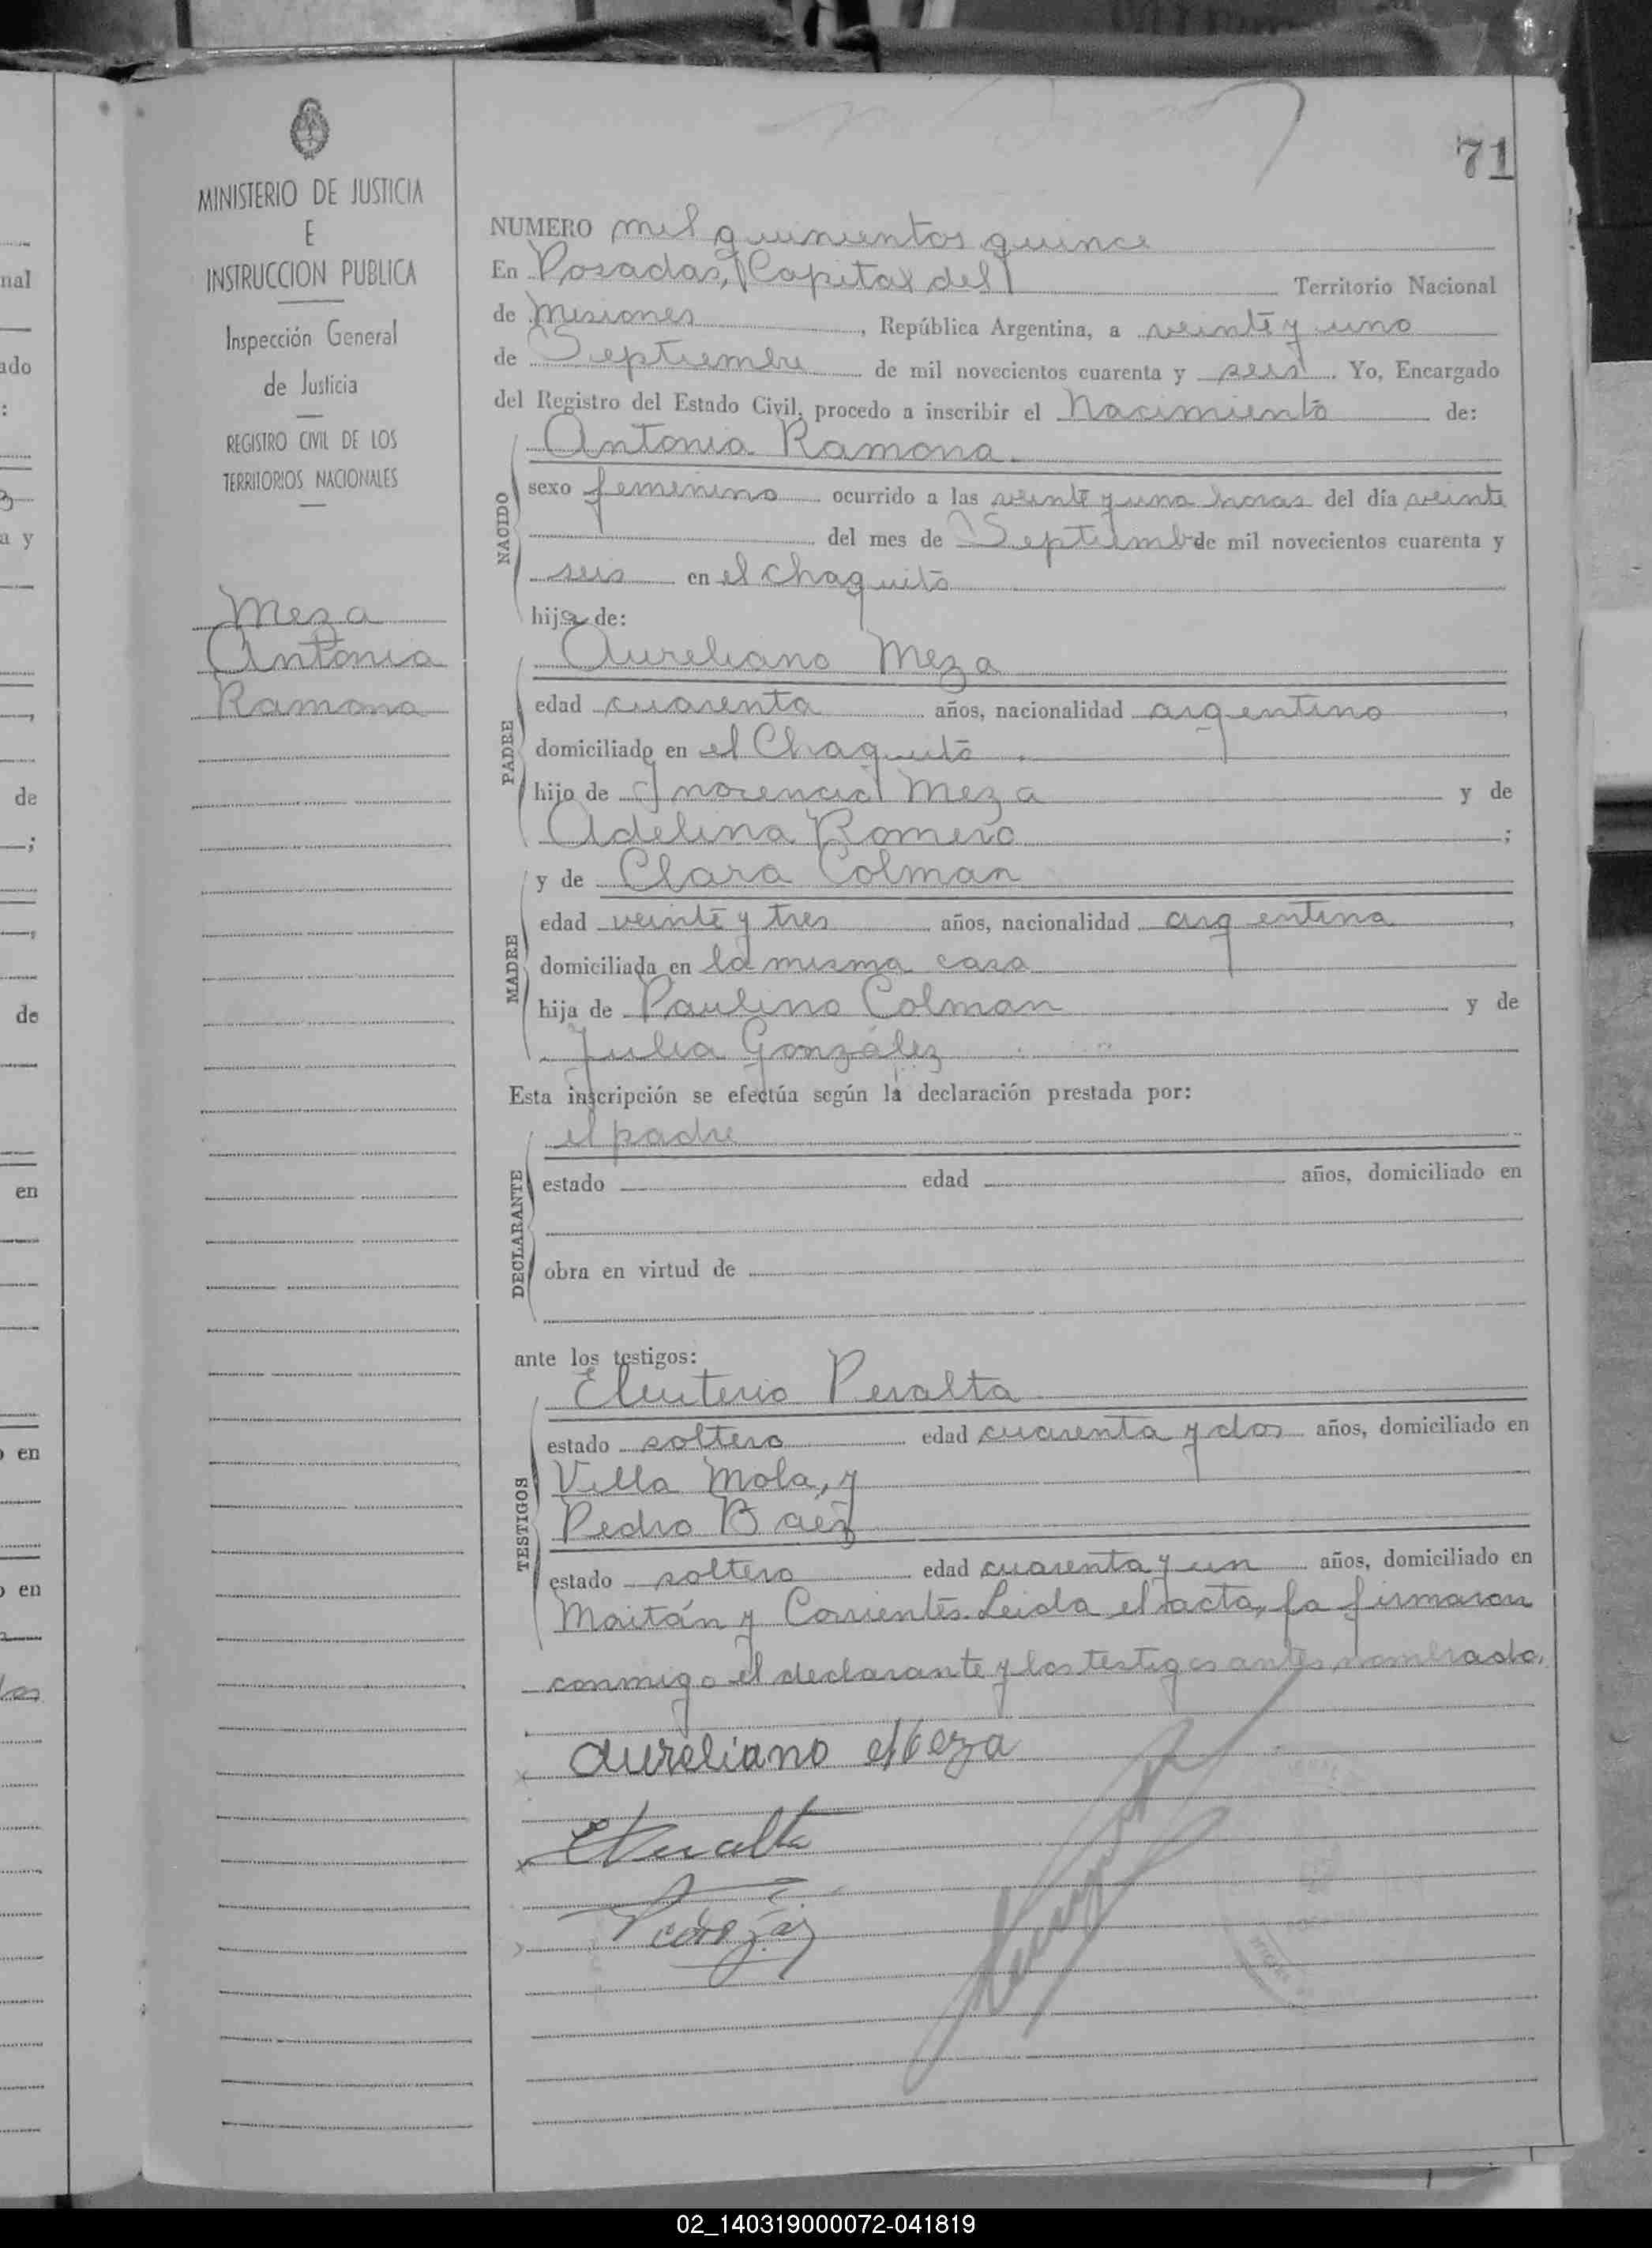 71
MINISTERIO DE JUSTICIA
E
INSTRUCCION PUBLICA
Inspección General
de Justicia
REGISTRO CIVIL DE LOS
TERRITORIOS NACIONALES
Meza
Antonia
Ramona
NUMERO mil quinientos quince
En Posadas, Capital del Territorio Nacional
de Misiones, República Argentina, a veinte y uno
de Septiembre de mil novecientos cuarenta y seis. Yo, Encargado
del Registro del Estado Civil, procedo a inscribir el Nacimiento de:
NACIDO
Antonia Ramona.
sexo femenino ocurrido a las veinte y una horas del día veinte
del mes de Septiembre de mil novecientos cuarenta y
seis en el chaquito
hija de:
PADRE
Aureliano Meza
edad cuarenta años, nacionalidad argentino,
domiciliado en el Chaquito.
hijo de Inorencio Meza y de
Adelina Romero;
MADRE
y de Clara Colman
edad veinte y tres años, nacionalidad argentina,
domiciliada en la misma casa
hija de Paulino Colman y de
Julia González
Esta inscripción se efectúa según la declaración prestada por:
DECLARANTE
el padre
estado edad años, domiciliado en
obra en virtud de
ante los testigos:
TESTIGOS
Eleuterio Peralta
estado soltero edad cuarenta y dos años, domiciliado en
Villa Mola, y
Pedro Baéz
estado soltero edad cuarenta y un años, domiciliado en
Maitán y Corrientes. Leida el acta, la firmaron
conmigo el declarante y los testigos antes nombrado.
x Aureliano Meza
x EPeralta
nal
ado
:
a y
de
;
de
en
en
en
02_140319000072-041819